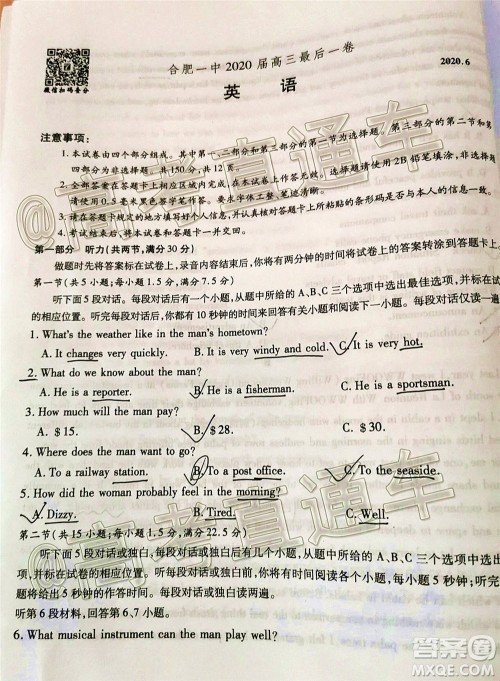 合肥一中2020届高三最后一卷
2020.6
微信扫码查分
英 语
注意事项:
1.本试卷由四个部分组成。其中,第一、二部分和第三部分的第一节为选择题。第三部分的第二节和
四部分为非选择题,共150分,共12页。
2.全部答案在答题卡上完成,答在本试卷上无效。选择题请使用2B铅笔填涂,非选择题
使用0.5毫米黑色墨水签字笔
3.请在答题卡和答题纸指定位置
所粘贴的条形码是否与本人的信息一致。
4.考试结束后,
第一部分 听力(共两节,满分30分)
做题时先将答案标在试卷上,录音内容结束后,你将有两分钟的时间将试卷上的答案转涂到答题卡上。
第一节(共5小题;每小题1.5分,满分7.5分)
听下面5段对话。每段对话后有一个小题,从题中所给的A、B、C三个选项中选出最佳选项,并标在试卷
的相应位置。听完每段对话后,你都有10秒钟的时间来回答有关小题和阅读下一小题。每段对话仅读一遍。
1. What's the weather like in the man's hometown?
A. It changes very quickly. B. It is very windy and cold. C. It is very hot.
2. What do we know about the man?
A. He is a reporter. B. He is a fisherman. C. He is a sportsman.
3. How much will the man pay?
A. $ 15. B. $ 28. C. $ 30.
4. Where does the man want to go?
A. To a railway station. B. To a post office. C. To the seaside.
5. How did the woman probably feel in the morning?
A. Dizzy. B. Tired. C. Well.
第二节(共15小题;每小题1.5分,满分22.5分)
听下面5段对话或独白。每段对话或独白后有几个小题,从题中所给的A、B、C三个选项中选出最佳选项,
并标在试卷的相应位置。听每段对话或独白前,你将有时间阅读各个小题,每小题5秒钟;听完后,各小题
给出5秒钟的作答时间。每段对话或独白读两遍。
听第6段材料,回答第6、7小题。
6. What musical instrument can the man play well?
@高考直通车
@高考直通车
答案圈
MXQE.COM